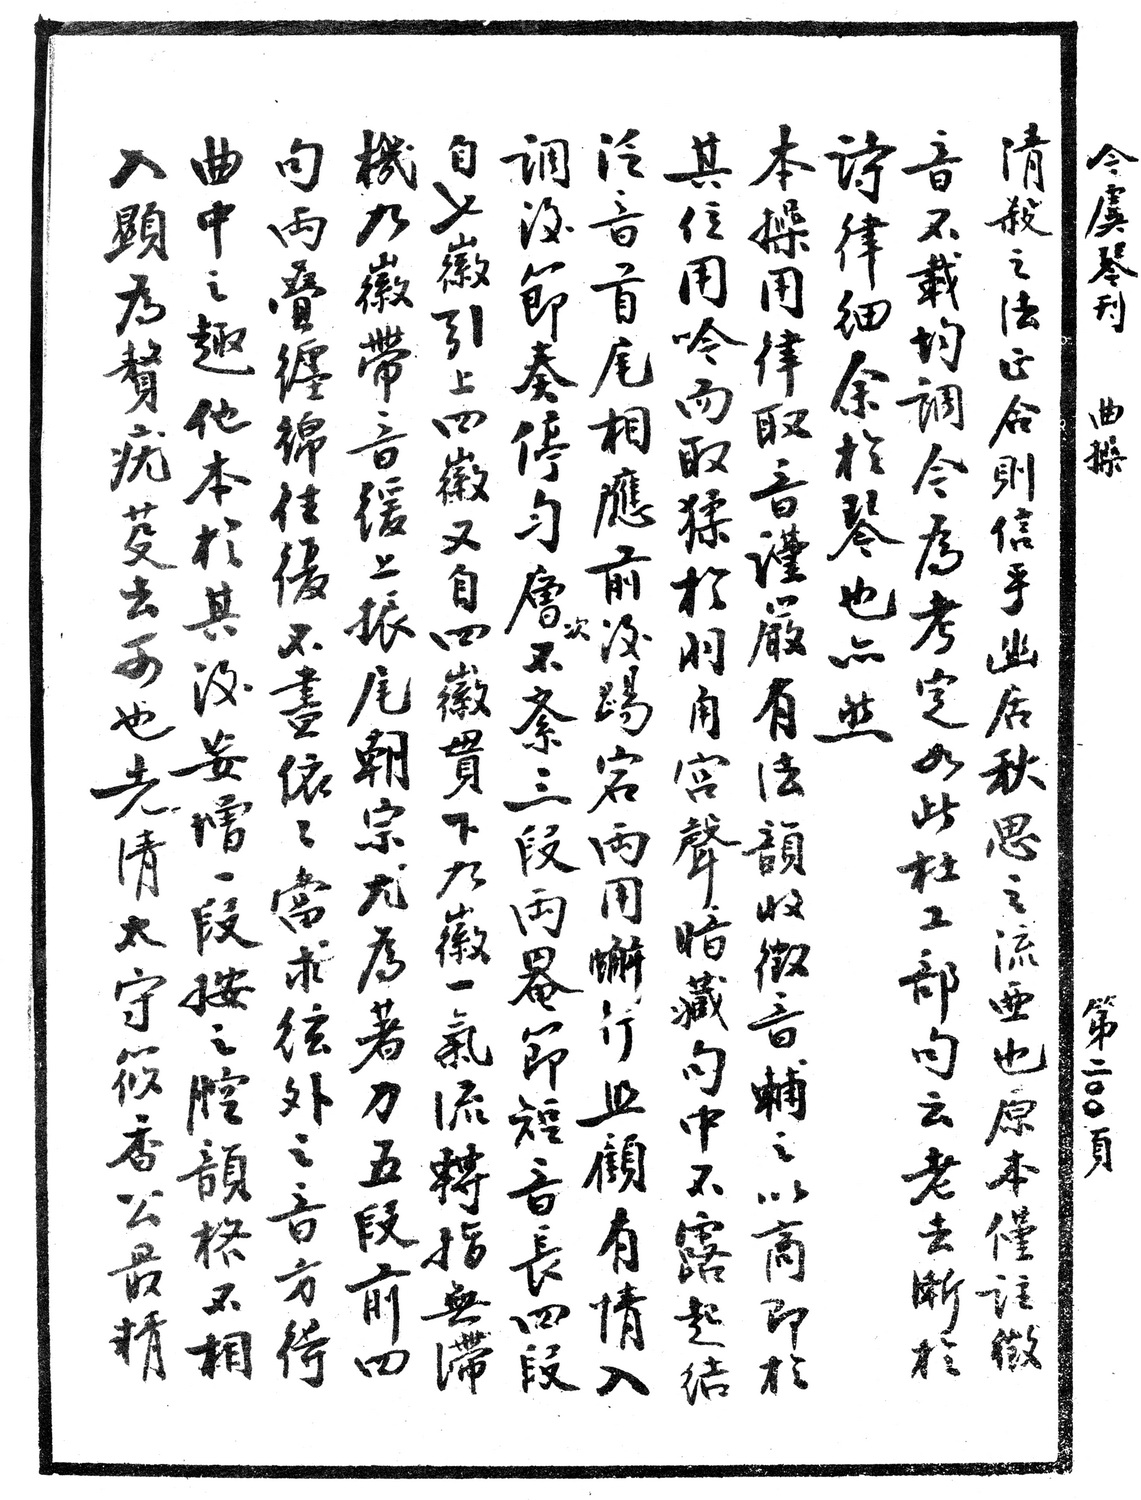 今虞琴刊　曲操　第二〇〇頁
清殺之法正合則信乎幽居秋思之流亜也原本僅註徵
音不載均調今為考定如此杜工部句云老去漸於
詩律細余於琴也亦然
本操用律取音謹嚴有法韻收徵音輔之以商即於
其位用吟而取猱於羽角宮聲暗藏句中不露起結
泛音首尾相應前後蹋宕兩用蠏行且顧有情入
調後節奏停勻層次不紊三段兩罨節短音長四段
自七徽引上四徽又自四徽貫下九徽一氣流轉指無滯
機九徽帶音緩上振尾朝宗尤為著力五段前四
句兩疊纏綿往復不盡依〻當求絃外之音方得
曲中之趣他本於其後妄增一段按之腔韻格不相
入顯為贅疣芟去可也先清太守筱香公最精